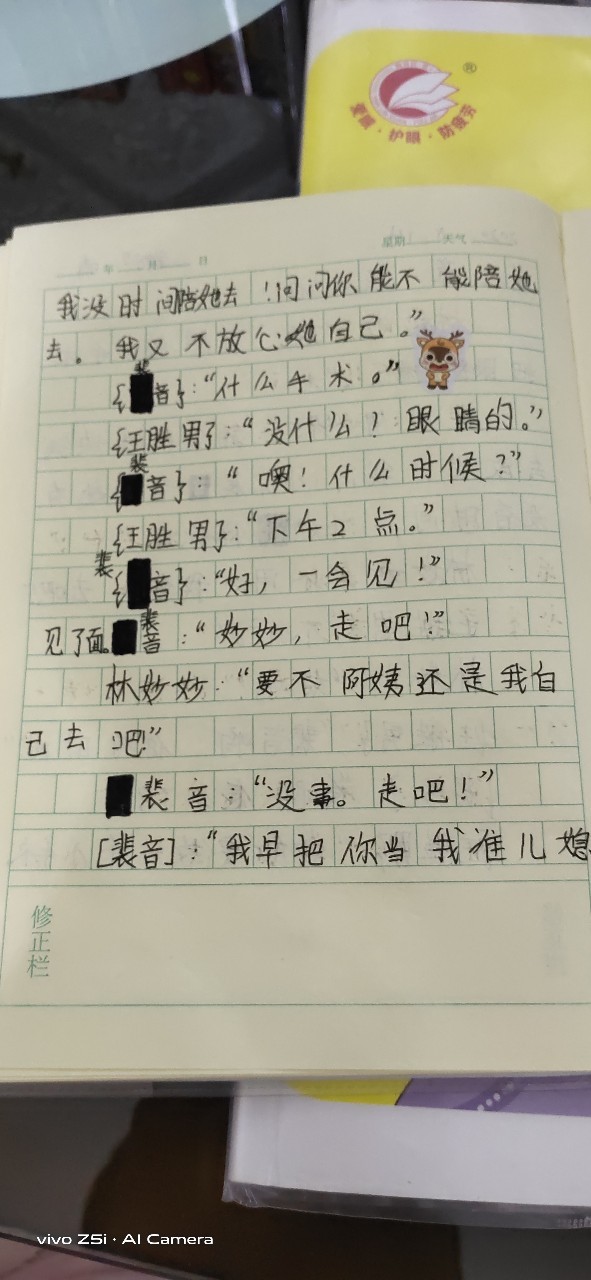 ®
爱眼·护眼·防疲劳
年 月 日 星期 天气
我没时间陪她去！问问你能不能陪她
去。我又不放心她自己。”
{裴音}：“什么手术。”
{王胜男}：“没什么！眼睛的。”
{裴音}：“噢！什么时候？”
{王胜男}：“下午2点。”
{裴音}：“好，一会见！”
见了面。裴音：“妙妙，走吧！”
林妙妙：“要不阿姨还是我自
己去吧！”
裴音：“没事。走吧！”
[裴音]：“我早把你当我准儿媳
修正栏
vivo Z5i · AI Camera